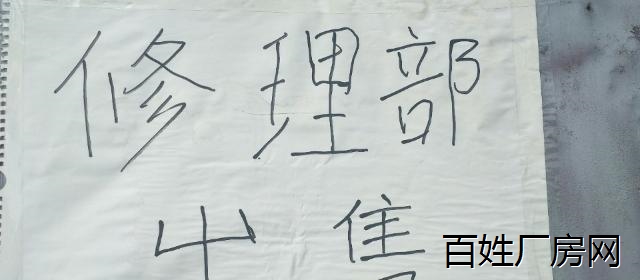 修理部
出售
百姓厂房网